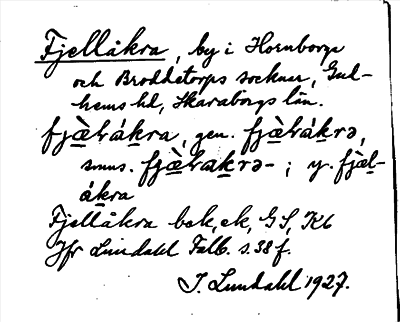 Fjellåkra, by i Hornborgs
och Broddetorps socknar, Gud-
hems hd, Skaraborgs län.
fjæ̀lákra, gen. fjæ̀lákrə,
smns. fjæ̀lakrə- ; y. fjæ̀l-
ákra
Fjellåkra bek, ek, GS, Kb
Jfr Lundahl Falb. s. 38 f.
I. Lundahl 1927.